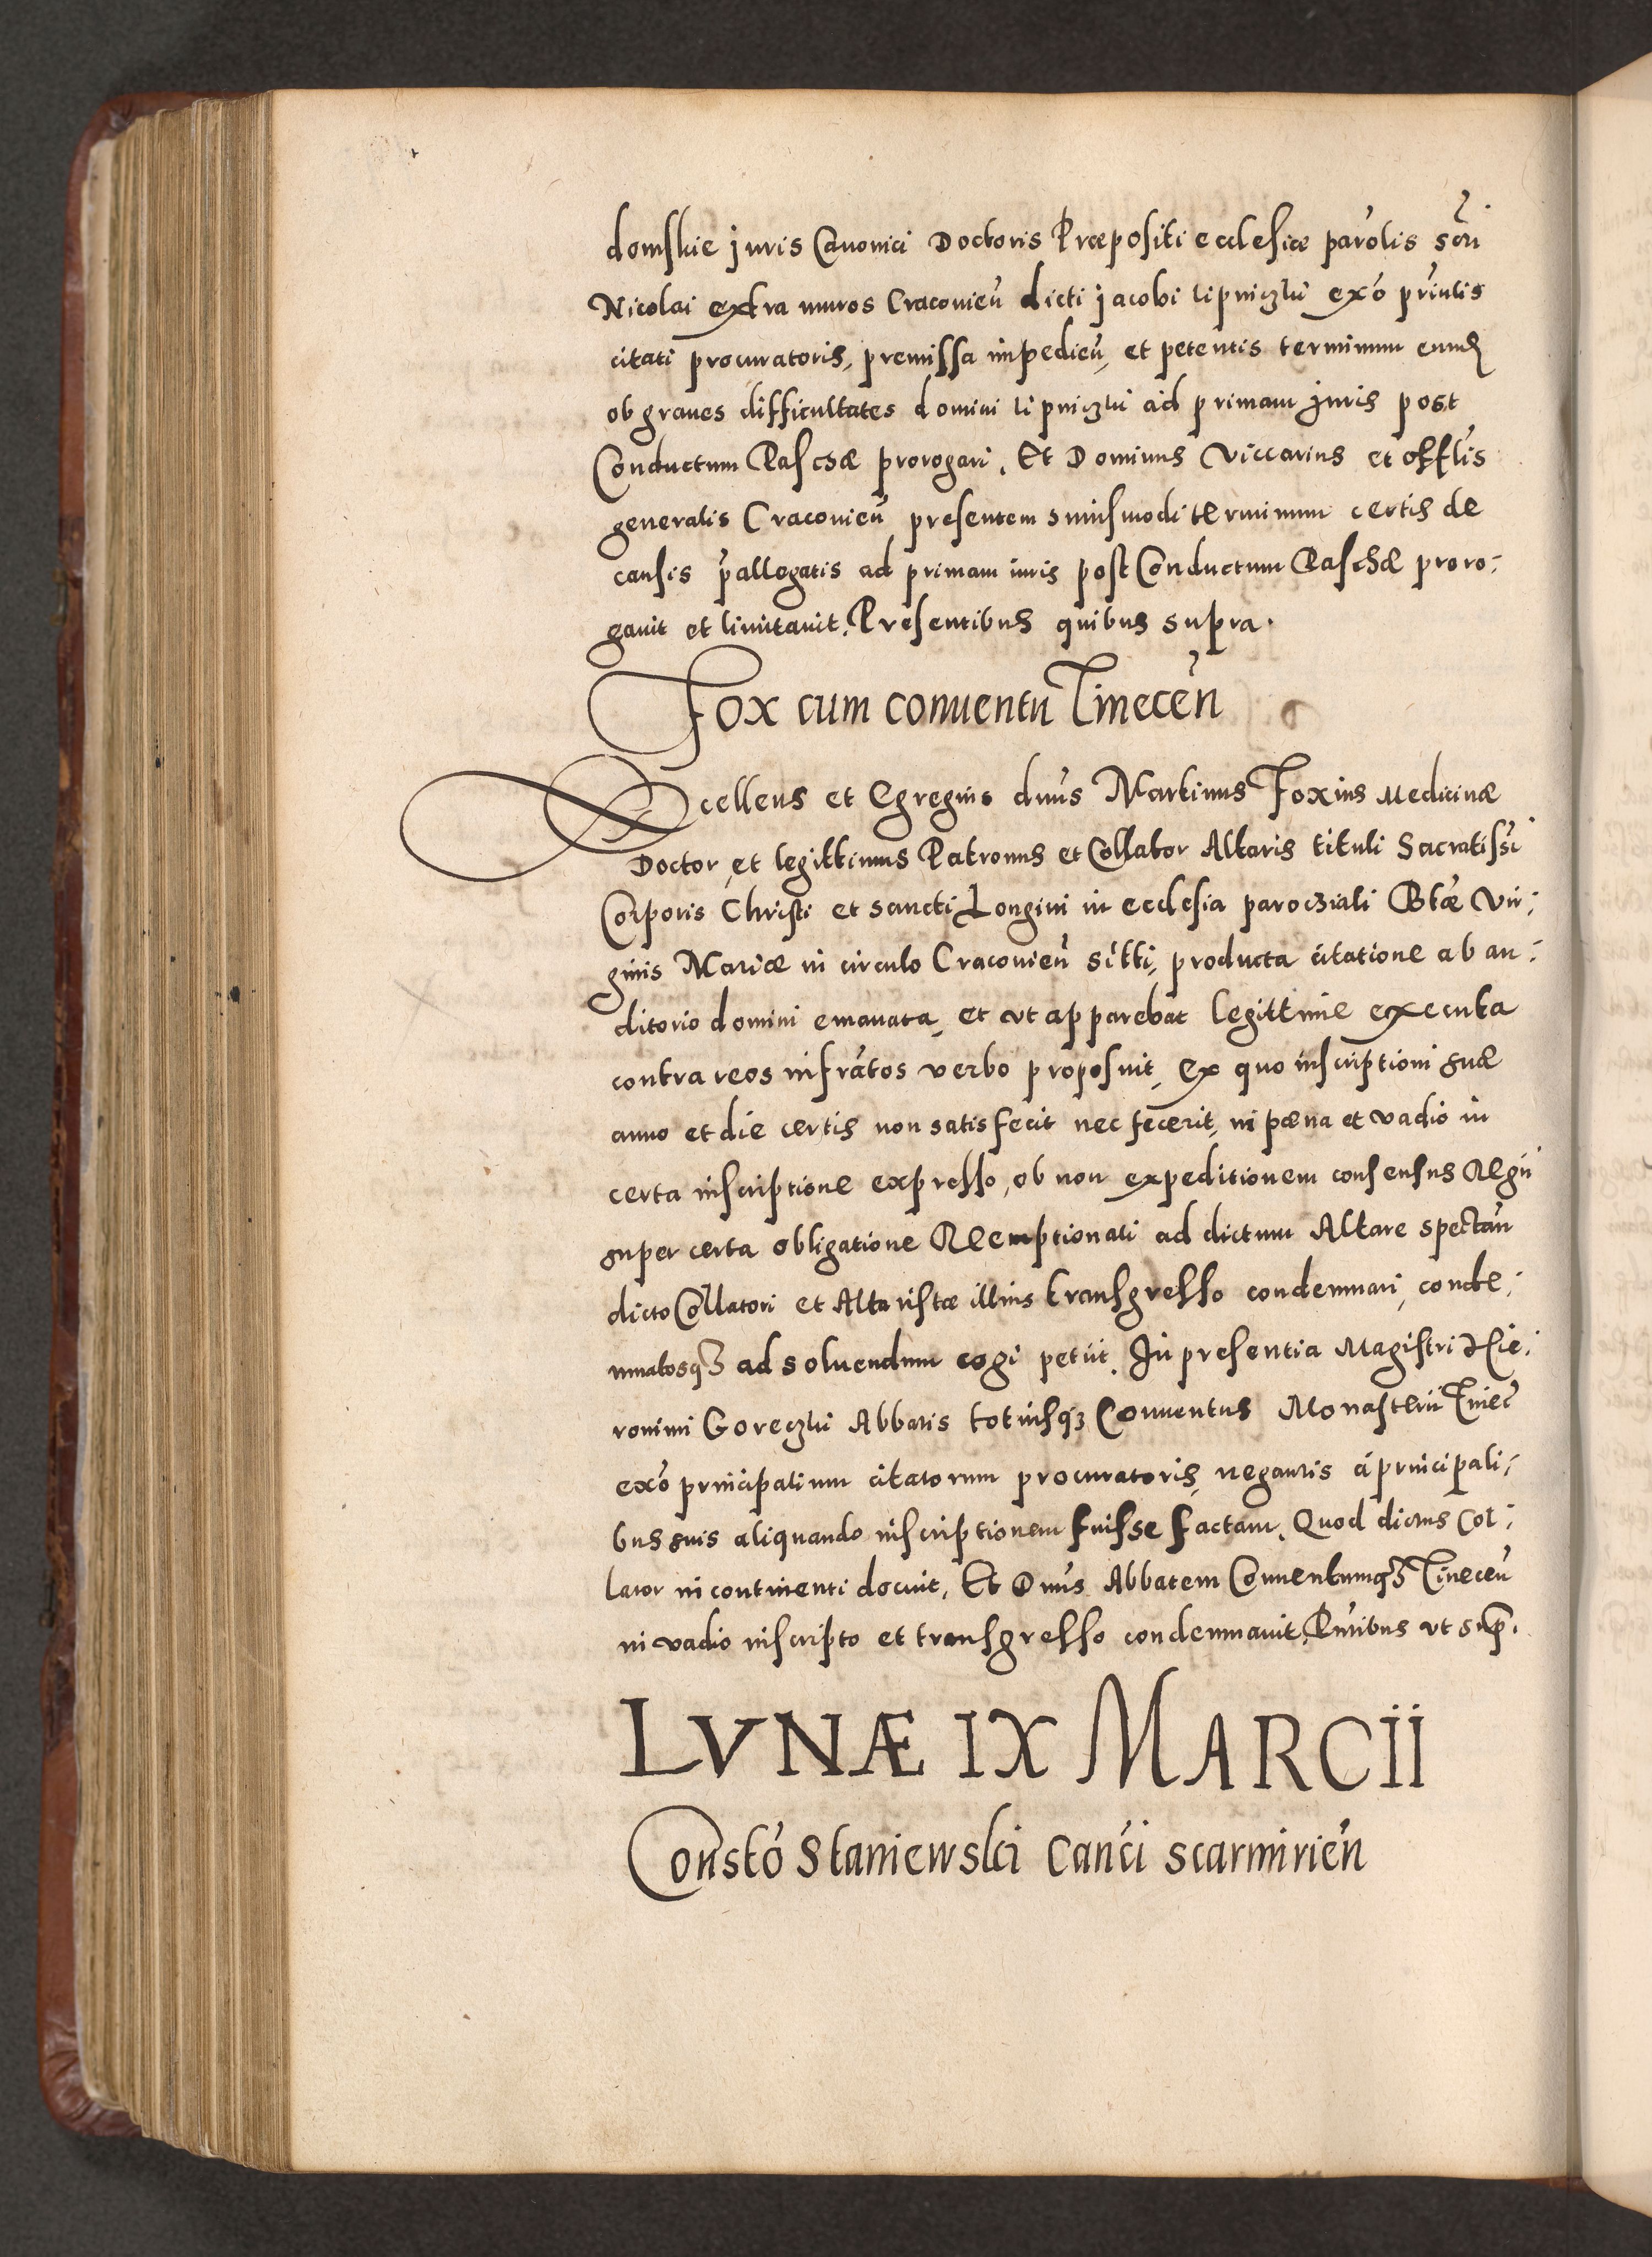 domskie juris Canonici Doctoris Præpositi ecclesiæ parolis scti
Nicolai extra muros Cracovien dicti jacobi lipniczki exo printis
citati procuratoris, premissa impedien, et petentis terminum eund
ob graues difficultates domini lipniczki ad primam juris post
Conductum Paschæ prorogari. Et Dominus Viccarius et offlis
generalis Cracovien presentem huiusmodi terminum certis de
causis pallegatis ad primam iuris post Conductum Paschæ proro:
gauit et limitauit. Presentibus quibus supra.
Fox cum conuentu Tinecen
Excellens et Egregius dnus Martinus Foxius Medicinæ
Doctor, et legittimus Patronus et Collator Altaris tituli Sacratissi
Corporis Christi et sancti Longini in ecclesia parochiali Btæ Vir:
ginis Mariæ in circulo Cracovien sitti, producta citatione ab au:
ditorio domini emanata, et ut apparebat legittime executa
contra reos infratos verbo proposuit, Ex quo inscriptioni suæ
anno et die certis non satisfecit nec fecerit, in pæna et vadio in
certa inscriptione expresso, ob non expeditionem consensus Regii
super certa obligatione Reemptionali ad dictum Altare spectan
dicto Collatori et Altaristæ illius transgresso condemnari, conde:
mnatosq3 ad soluendum cogi petiit. In presentia Magistri Hie:
ronimi Goreczki Abbatis totiusq3 Conuentus Monasterii Tinec
exo principalium citatorum procuratoris, negantis a principali:
bus suis aliquando inscriptionem fuisse factam. Quod dictus Col:
lator in continenti docuit. Et Dnus Abbatem Conuentumq3 Tinecen
in vadio inscripto et transgresso condemnauit. Pntibus ut sup.
LVNÆ IX MARCII
Consto Staniewski Canci scarmirien